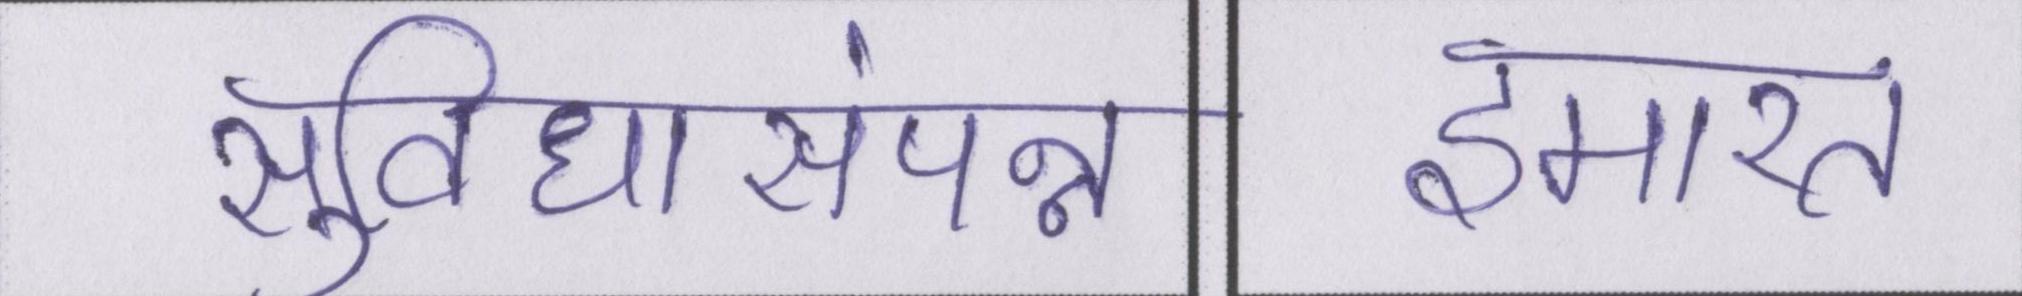 सुविधासंपन्न इमारत